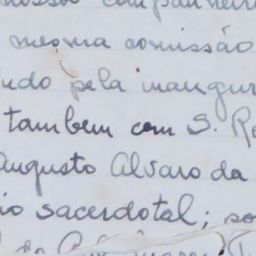 nosso companheir
mesma comissão
ndo pela inaugur
tambem com S. Re
Augusto Alvaro da
io sacerdotal; so